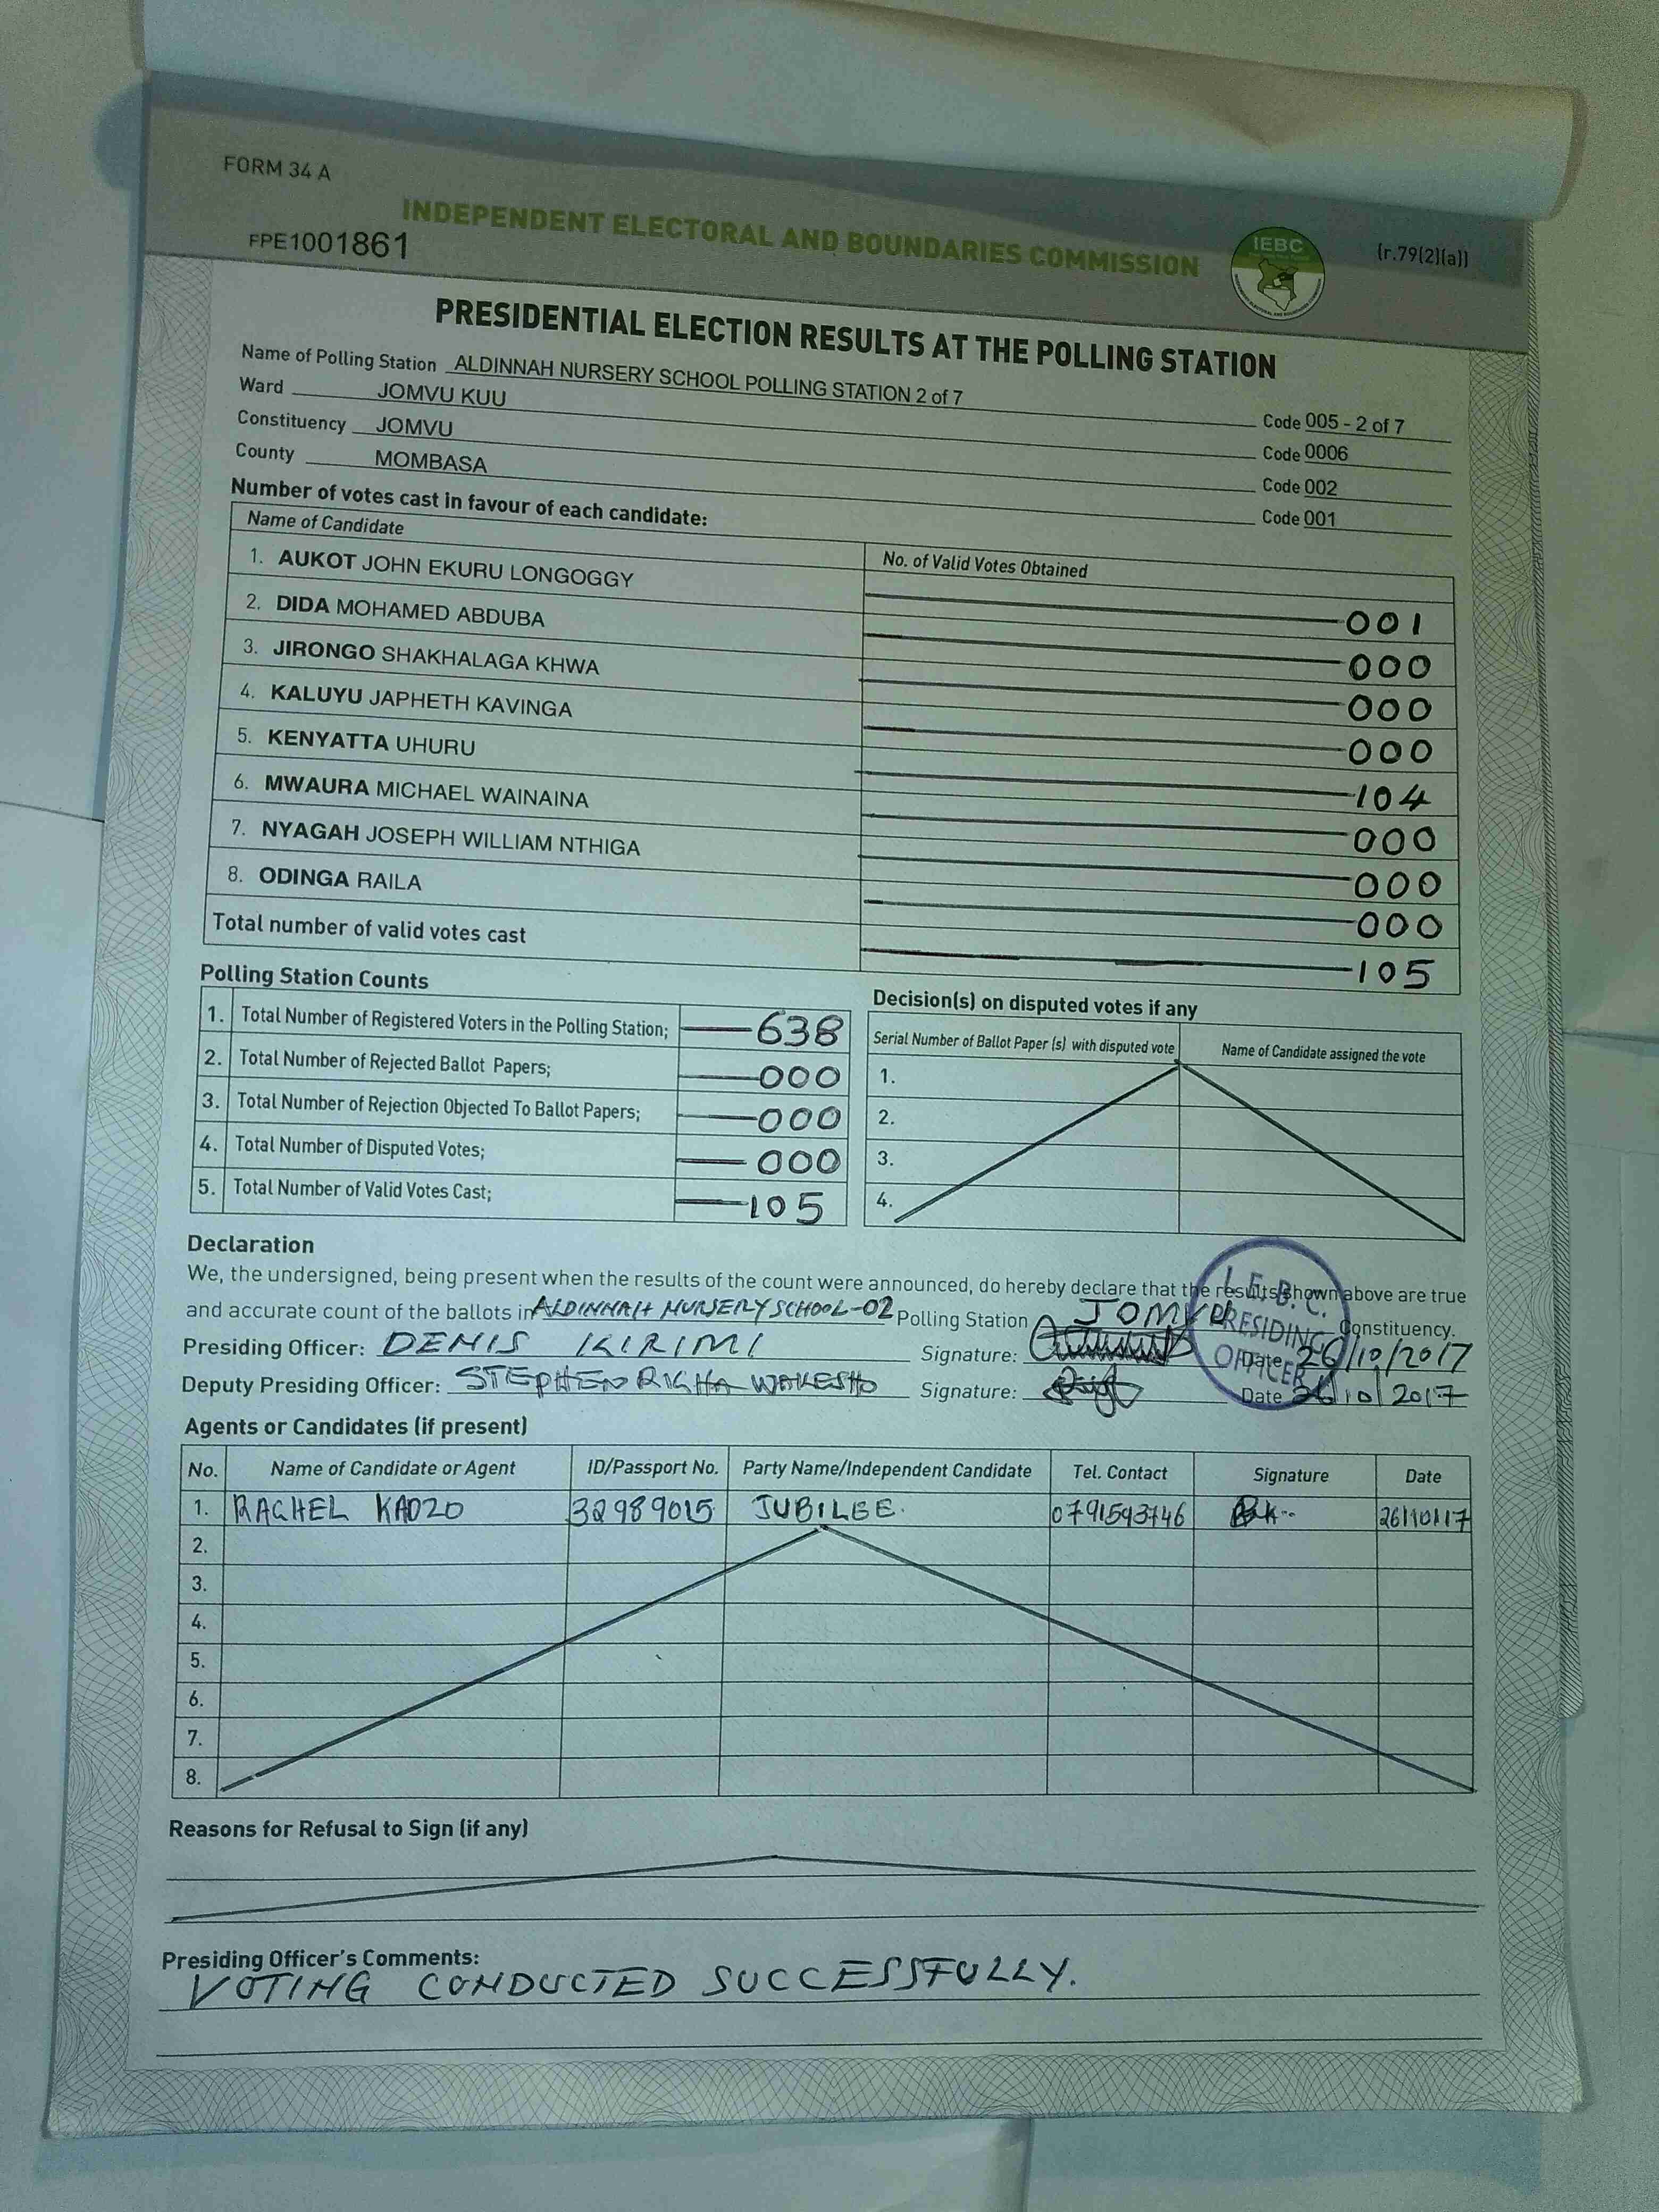 FORM 34 A
INDEPENDENT ELECTORAL AND BOUNDARIES COMMISSION
IEBC
(r.79(2)(a))
FPE1001861
PRESIDENTIAL ELECTION RESULTS AT THE POLLING STATION
Name of Polling Station ALDINNAH NURSERY SCHOOL POLLING STATION 2 of 7 Code 005 - 2 of 7
Ward JOMVU KUU Code 0006
Constituency JOMVU Code 002
County MOMBASA Code 001
Number of votes cast in favour of each candidate:
Name of Candidate No. of Valid Votes Obtained
1. AUKOT JOHN EKURU LONGOGGY 001
2. DIDA MOHAMED ABDUBA 000
3. JIRONGO SHAKHALAGA KHWA 000
4. KALUYU JAPHETH KAVINGA 000
5. KENYATTA UHURU 104
6. MWAURA MICHAEL WAINAINA 000
7. NYAGAH JOSEPH WILLIAM NTHIGA 000
8. ODINGA RAILA 000
Total number of valid votes cast 105
Polling Station Counts
1. Total Number of Registered Voters in the Polling Station; 638
2. Total Number of Rejected Ballot Papers; 000
3. Total Number of Rejection Objected To Ballot Papers; 000
4. Total Number of Disputed Votes; 000
5. Total Number of Valid Votes Cast; 105
Decision(s) on disputed votes if any
Serial Number of Ballot Paper (s) with disputed vote Name of Candidate assigned the vote
1.
2.
3.
4.
Declaration
We, the undersigned, being present when the results of the count were announced, do hereby declare that the results shown above are true
and accurate count of the ballots in ALDINNAH NURSERY SCHOOL-02 Polling Station JOMVU Constituency.
I.E.B.C.
PRESIDING
OFFICER
Presiding Officer: DENIS KIRIMI Signature: Date 26/10/2017
Deputy Presiding Officer: STEPHEN RIGHA WAKESHO Signature: Date 26/10/2017
Agents or Candidates (if present)
No. Name of Candidate or Agent ID/Passport No. Party Name/Independent Candidate Tel. Contact Signature Date
1. RACHEL KADZO 32989015 JUBILEE. 0791593746 26/10/17
2.
3.
4.
5.
6.
7.
8.
Reasons for Refusal to Sign (if any)
Presiding Officer's Comments:
VOTING CONDUCTED SUCCESSFULLY.